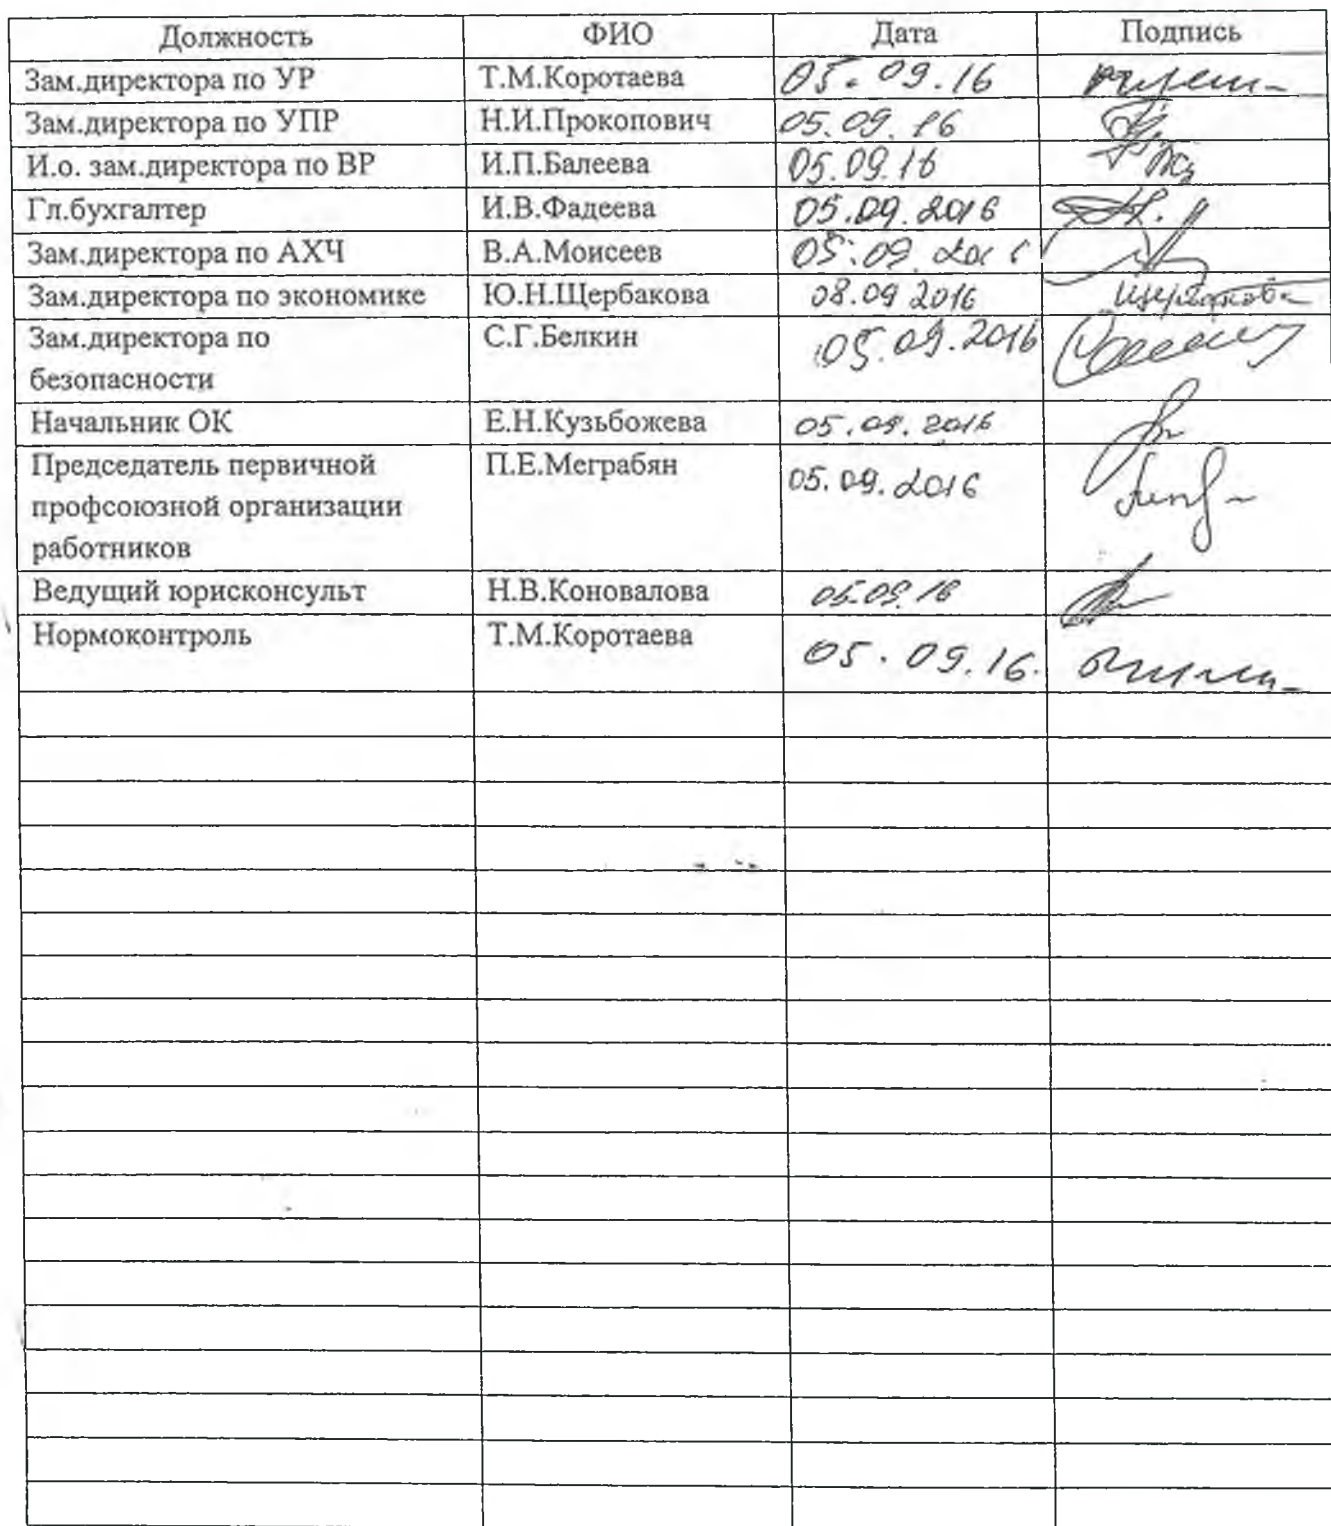 Должность ФИО Дата Подпись
Зам.директора по УР Т.М.Коротаева 05.09.16
Зам.директора по УПР Н.И.Прокопович 05.09.16
И.о. зам.директора по ВР И.П.Балеева 05.09.16
Гл.бухгалтер И.В.Фадеева 05.09.2016
Зам.директора по АХЧ В.А.Моисеев 05.09.2016
Зам.директора по экономике Ю.Н.Щербакова 08.09.2016
Зам.директора по С.Г.Белкин 05.09.2016
безопасности
Начальник ОК Е.Н.Кузьбожева 05.09.2016
Председатель первичной П.Е.Меграбян 05.09.2016
профсоюзной организации
работников
Ведущий юрисконсульт Н.В.Коновалова 05.09.16
Нормоконтроль Т.М.Коротаева 05.09.16.